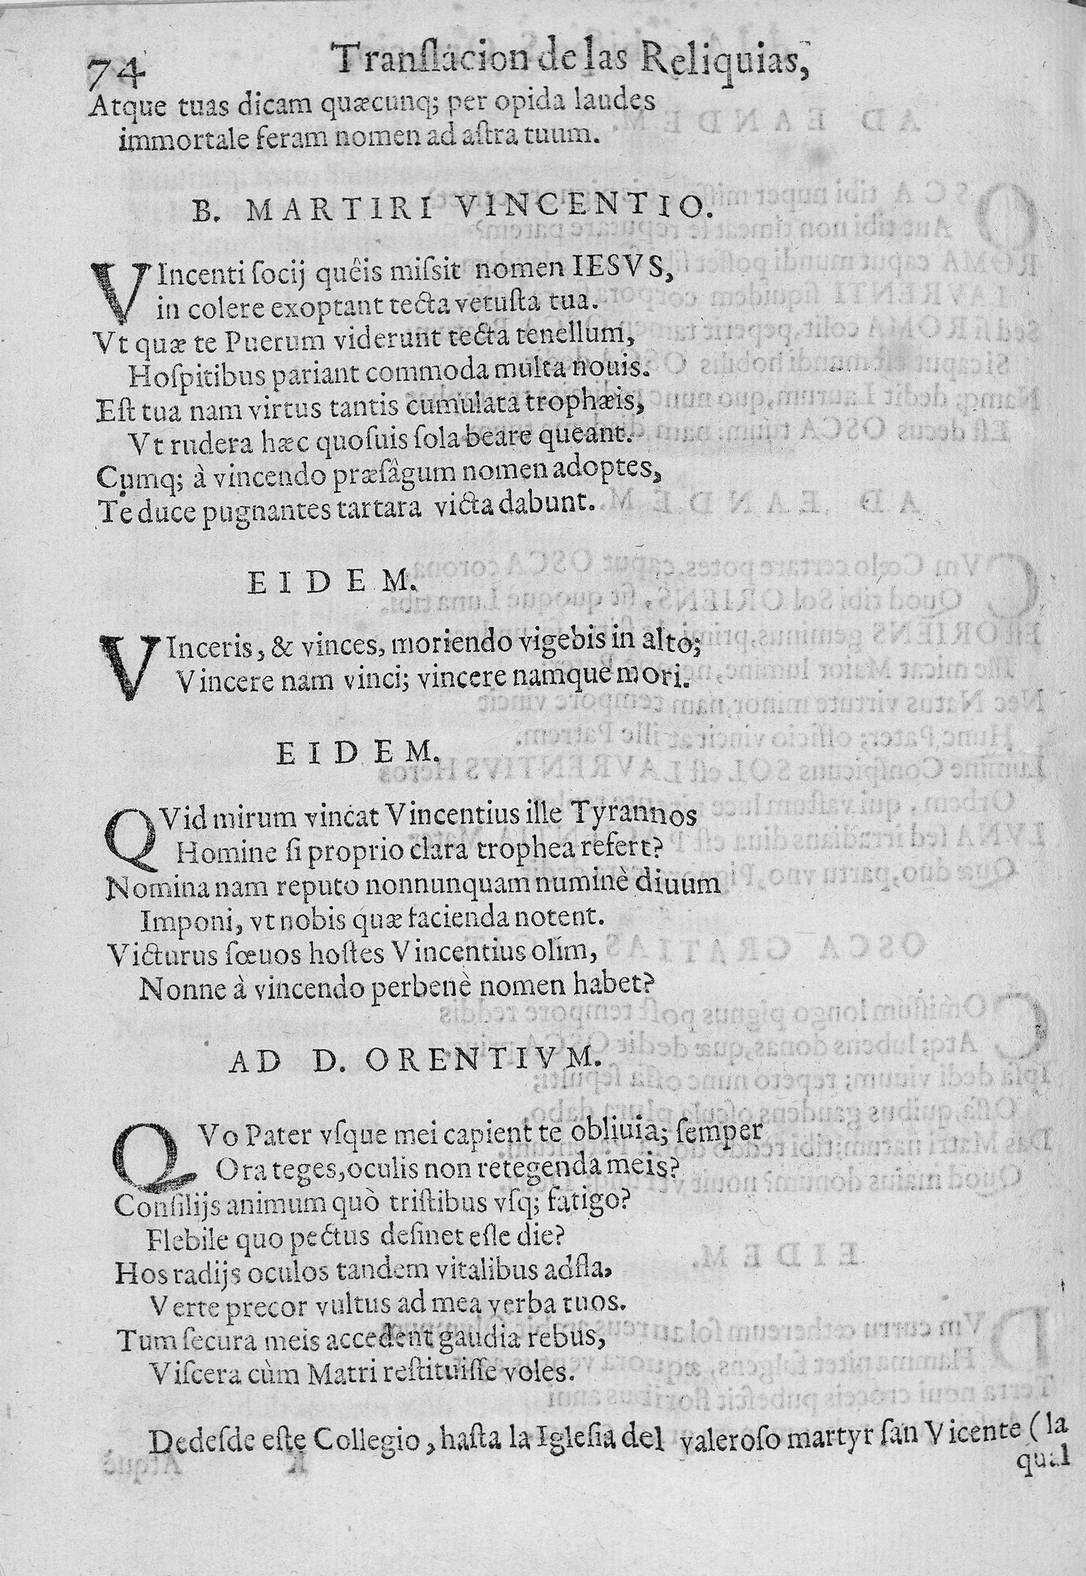 74 Translacion de las Reliquias,
Atque tuas dicam quæcunq; per opida laudes
immortale feram nomen ad astra tuum.
B. MARTIRI VINCENTIO.
VIncenti socij quêis missit nomen IESVS,
in colere exoptant tecta vetusta tua.
Vt quæ te Puerum viderunt tecta tenellum,
Hospitibus pariant commoda multa nouis.
Est tua nam virtus tantis cumulata trophæis,
Vt rudera hæc quosuis sola beare queant.
Cumq; à vincendo præsâgum nomen adoptes,
Te duce pugnantes tartara victa dabunt.
EIDEM.
VInceris, & vinces, moriendo vigebis in alto;
Vincere nam vinci; vincere namque mori.
EIDEM.
QVid mirum vincat Vincentius ille Tyrannos
Homine si proprio clara trophea refert?
Nomina nam reputo nonnunquam numinè diuum
Imponi, vt nobis quæ facienda notent.
Victurus sœuos hostes Vincentius olim,
Nonne à vincendo perbenè nomen habet?
AD D. ORENTIVM.
QVo Pater vsque mei capient te obliuia; semper
Ora teges, oculis non retegenda meis?
Consilijs animum quò tristibus vsq; fatigo?
Flebile quo pectus desinet esse die?
Hos radijs oculos tandem vitalibus adfla,
Verte precor vultus ad mea verba tuos.
Tum secura meis accedent gaudia rebus,
Viscera cùm Matri restituisse voles.
Dedesde este Collegio, hasta la Iglesia del valeroso martyr san Vicente (la
qual